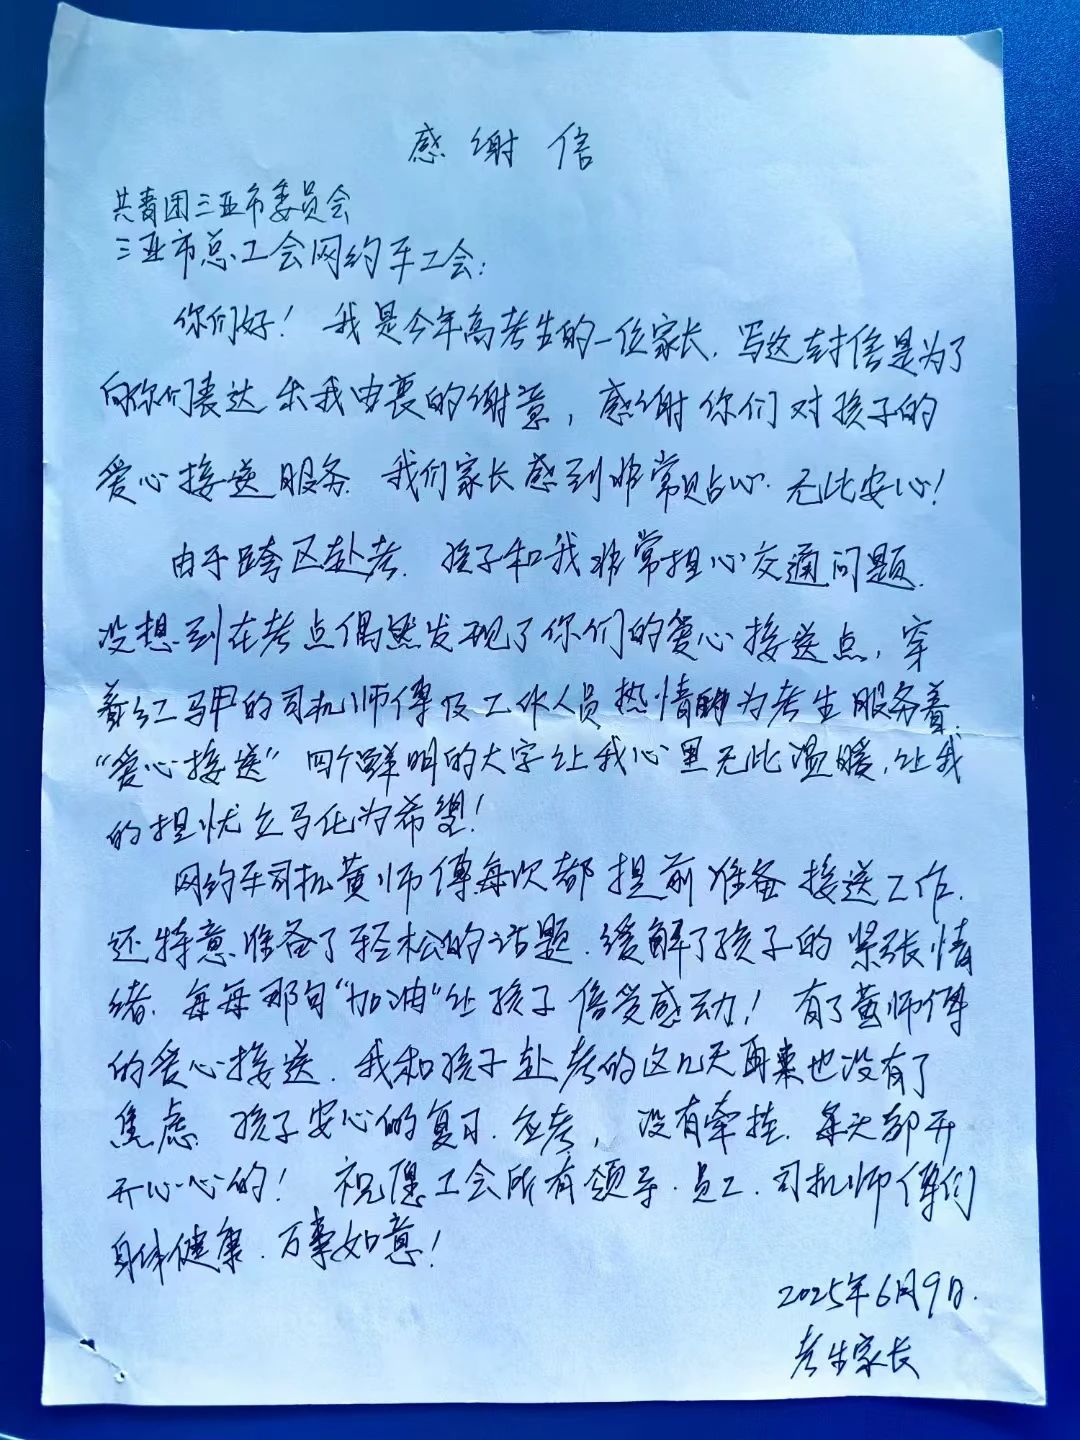 感谢信
共青团三亚市委员会
三亚市总工会网约车工会:
你们好！我是今年高考生的一位家长，写这封信是为了
向你们表达出我由衷的谢意，感谢你们对孩子的
爱心接送服务，我们家长感到非常贴心，无比安心！
由于跨区赴考，孩子和我非常担心交通问题，
没想到在考点偶然发现了你们的爱心接送点，穿
着红马甲的司机师傅及工作人员热情的为考生服务着，
“爱心接送”四个鲜明的大字让我心里无比温暖，让我
的担忧立马化为希望！
网约车司机黄师傅每次都提前准备接送工作，
还特意准备了轻松的话题，缓解了孩子的紧张情
绪，每每那句“加油”让孩子倍受感动！有了黄师傅
的爱心接送，我和孩子赴考的这几天再来也没有了
焦虑，孩子安心的复习、应考，没有牵挂，每天都开
开心心的！祝愿工会所有领导、员工、司机师傅们
身体健康，万事如意！
2025年6月9日.
考生家长